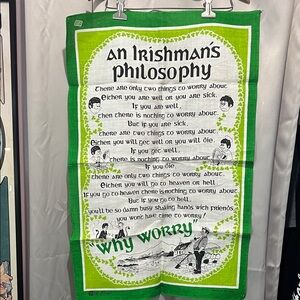 an Irishman's
philosophy
There are only two things to worry about.
Either you are well or you are sick.
If you are well,
then there is nothing to worry about.
But if you are sick,
there are two things to worry about
Either you will get well or you will die.
If you get well,
there is nothing to worry about.
If you die
there are only two things to worry about.
Either you will go to heaven or hell
If you go to heaven there is nothing to worry about.
But if you go to hell,
you'll be so damn busy shaking hands with friends
you won't have time to worry!
"why worry"